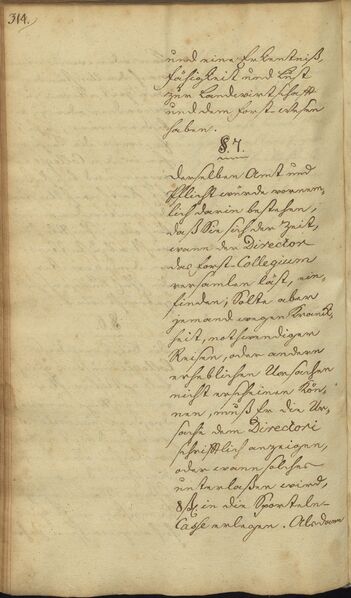 314.
und eine Erkentniß,
Fähigkeit und Lust
zur Landwirtschafft
und dem Forst-wesen
haben.
§. 7.
Derselben Amt und
Pflicht würde vornem,
lich darin bestehen,
daß Sie sich der Zeit,
wann der Director
das Forst-Collegium
versamlen läst, ein,
finden; Solte aber
jemand wegen Kranck,
heit, nothwendiger
Reisen, oder andern
erheblichen Ursachen
nicht erscheinen Kön,
nen, muß Er die Ur,
sache dem Directori
schrifftlich anzeigen,
oder wann solches
unterlaßen wird,
in die Sporteln-
Casse erlegen. Alsdann